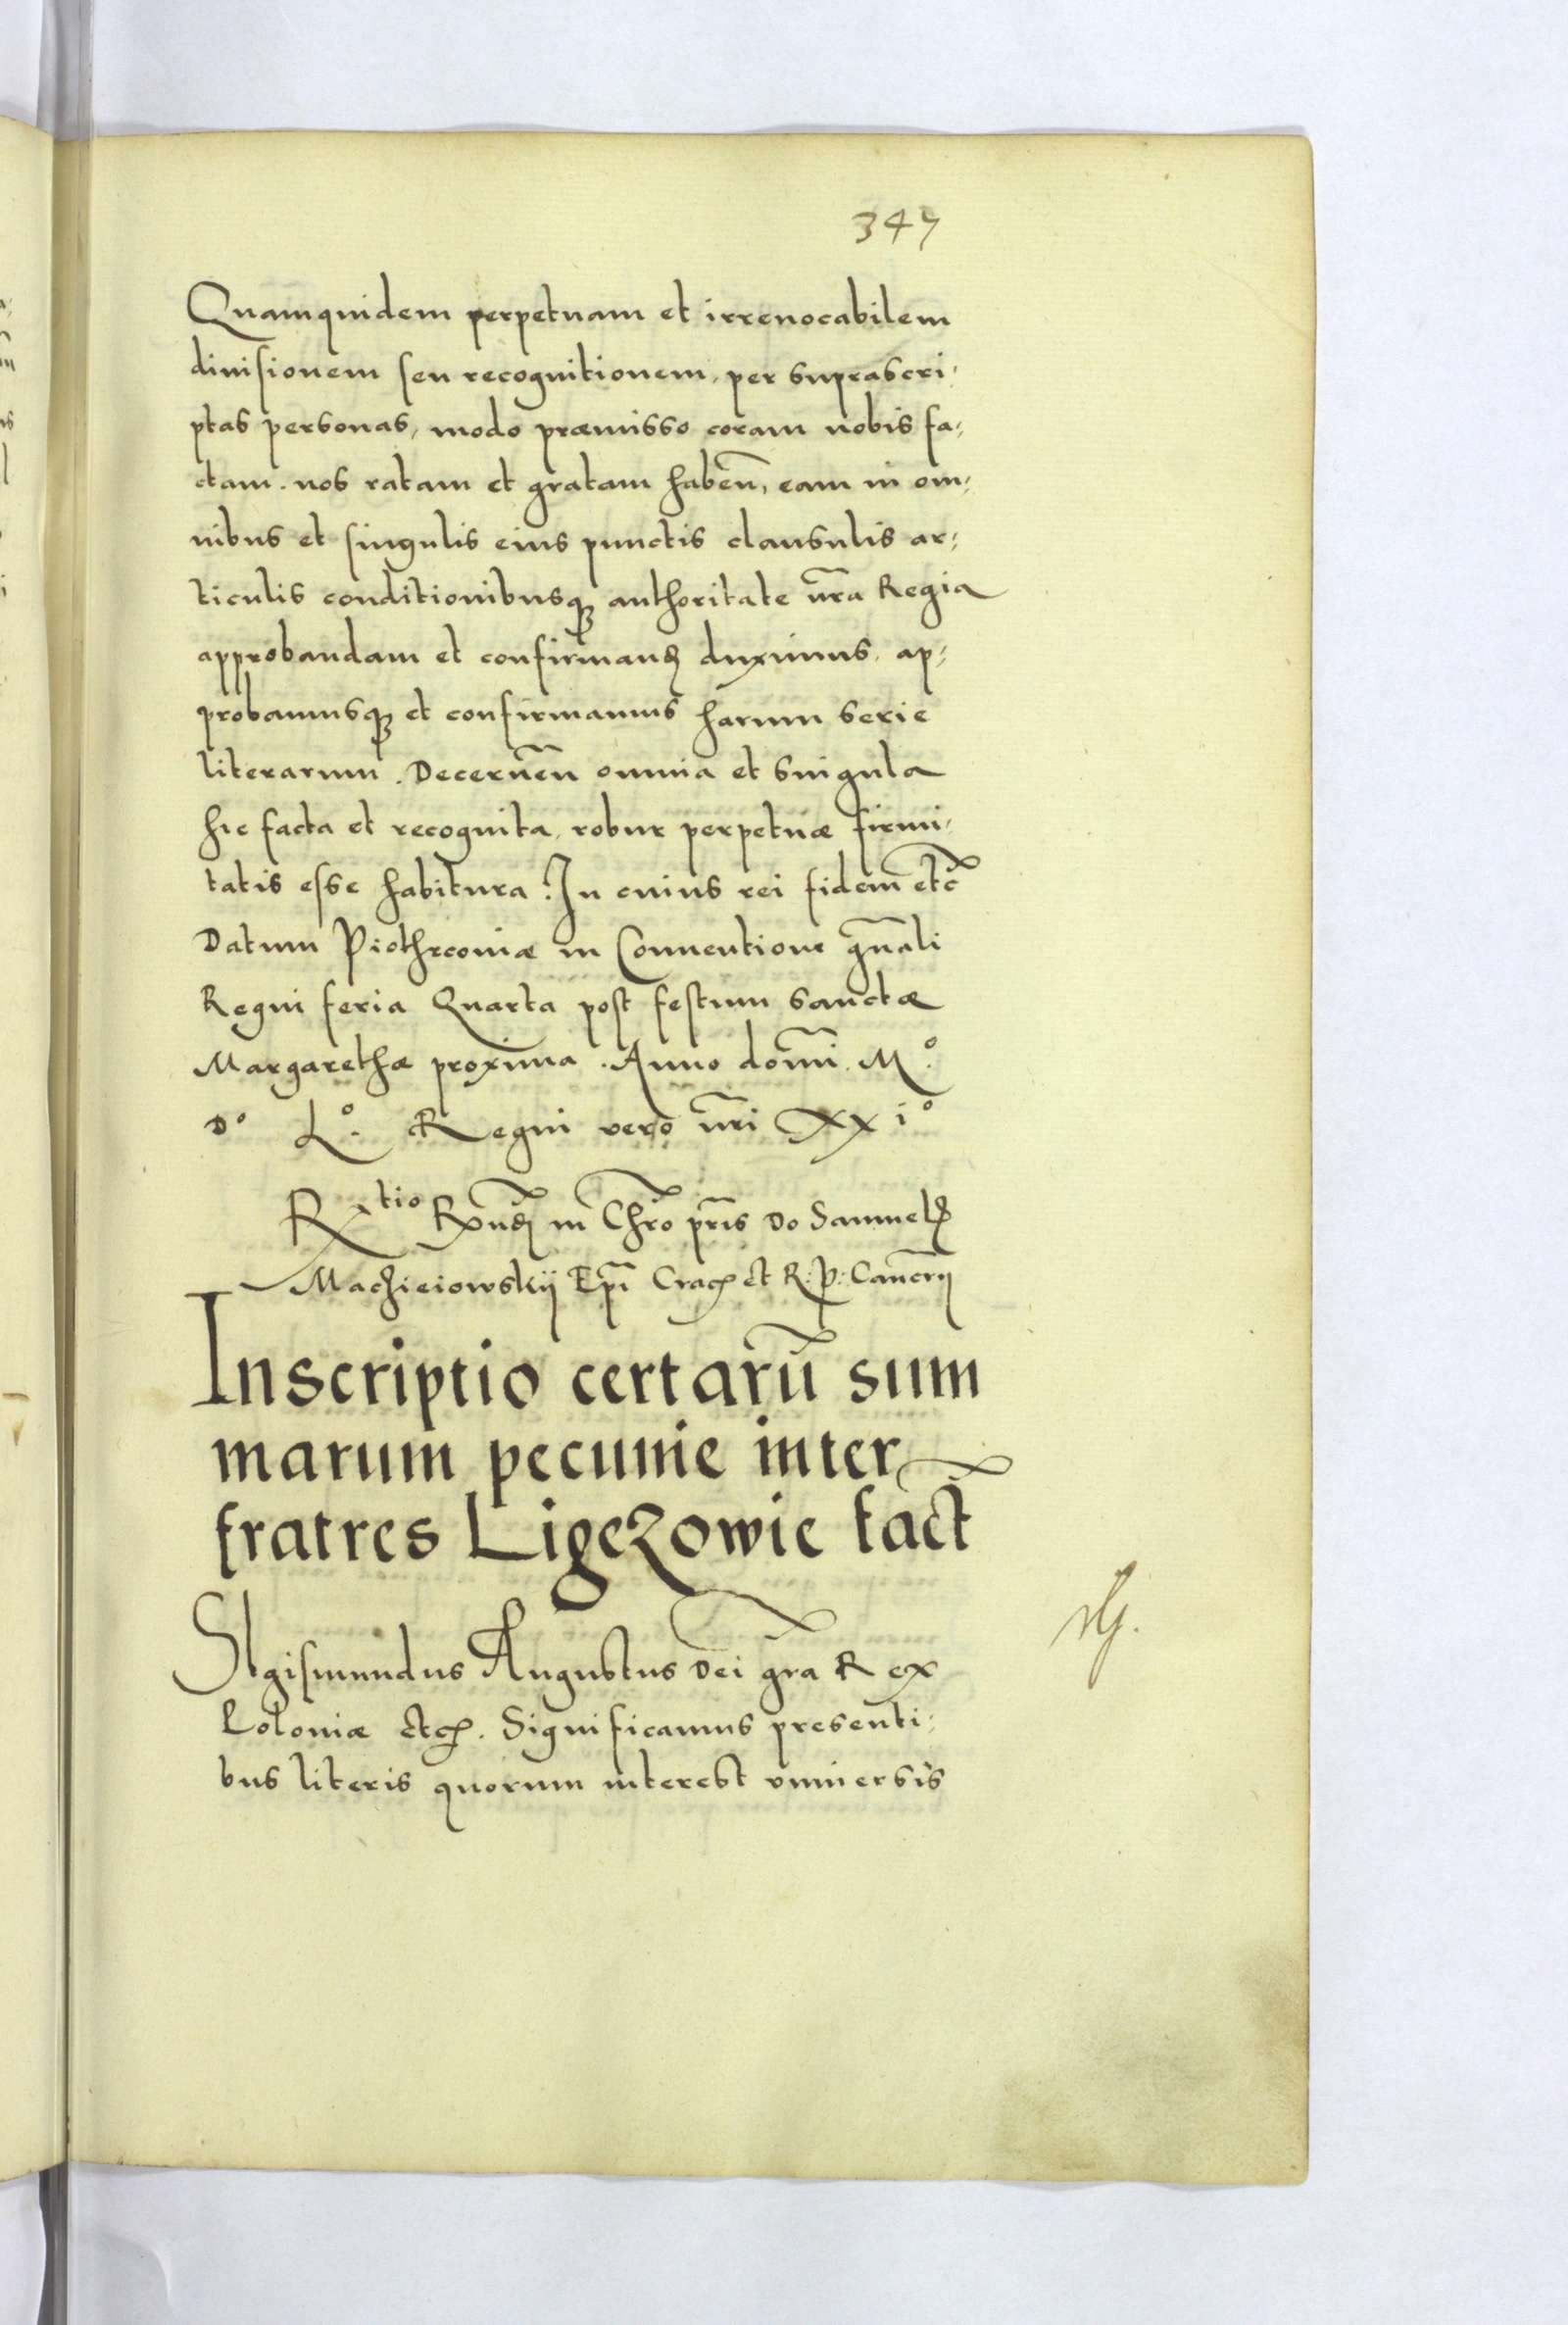 347
Quamquidem perpetuam et irreuocabilem
diuisionem seu recognitionem, per suprascri-
ptas personas, modo præmisso coram nobis fa-
ctam. nos ratam et gratam haben̄, eam in om-
nibus et singulis eius punctis clausulis ar-
ticulis conditionibusq₃ authoritate nr̃a Regia
approbandam et confirmand̃ duximus. ap-
probamusq₃ et confirmamus harum serie
literarum. Decernen̄ omnia et singula
hic facta et recognita, robur perpetuæ firmi-
tatis esse habitura. In cuius rei fidem etc̃
Datum Piothrcouiæ in Conuentione gn̄ali
Regni feria Quarta post festum sanctæ
Margarethæ proxima. Anno domi̇̃. Mº.
Dº Lº. Regni vero nr̃i XXiº
Rtio Rx̃nd̃ in Chr̃o pr̃is Do Samuel̃
Maczieiowskij Ep̃i Crac̃ et R: P: Canc̃rij
Inscriptio certarũ sum
marum pecunie inter
fratres Ligezowie fact̃
SIgismundus Augustus Dei gr̃a Rex
Poloniæ etc̃. Significamus presenti-
bus literis quorum interest vniuersis